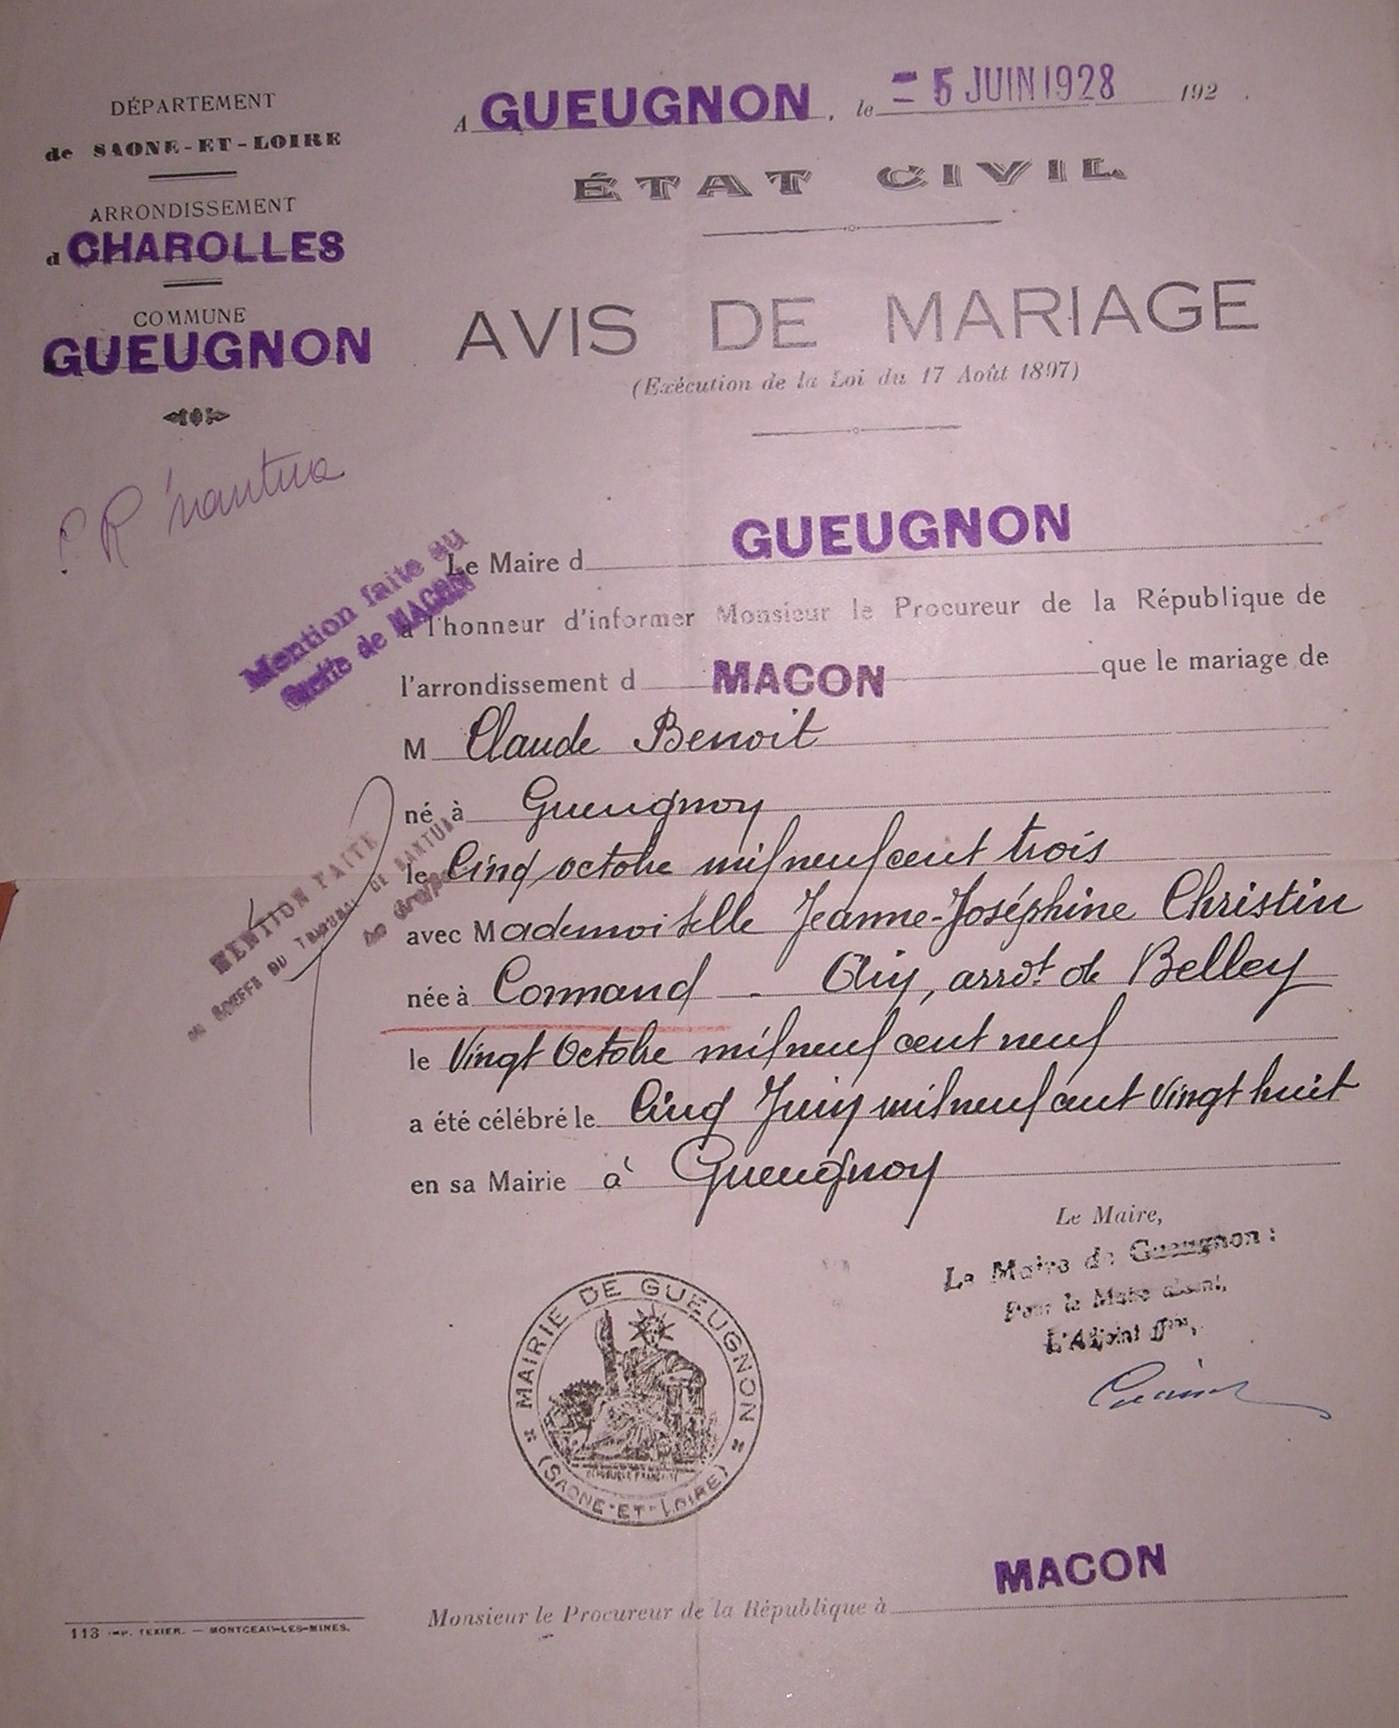 DÉPARTEMENT
de SAONE-ET-LOIRE
ARRONDISSEMENT
d CHAROLLES
COMMUNE
GUEUGNON
A GUEUGNON, le - 5 JUIN 1928 192 .
ÉTAT CIVIL
AVIS DE MARIAGE
(Exécution de la Loi du 17 Août 1897)
P. R Nantua
Mention faite au
Greffe de MACON
Le Maire d GUEUGNON
a l'honneur d'informer Monsieur le Procureur de la République de
l'arrondissement d MACON que le mariage de
M Claude Benoit
né à Gueugnon
le Cinq octobre mil neuf cent trois
avec Mademoiselle Jeanne-Joséphine Christin
née à Conmand - Ain, arrot de Belley
le Vingt Octobre mil neuf cent neuf
a été célébré le Cinq Juin mil neuf cent vingt huit
en sa Mairie à Gueugnon
MENTION FAITE
au GREFFE DU TRIBUNAL DE NANTUA
Le Greffier
Le Maire,
Le Maire de Gueugnon :
Pour le Maire absent,
L'Adjoint
MAIRIE DE GUEUGNON
(SAONE-ET-LOIRE)
RÉPUBLIQUE FRANÇAISE
MACON
Monsieur le Procureur de la République à
113 IMP. TEXIER. — MONTCEAU-LES-MINES.